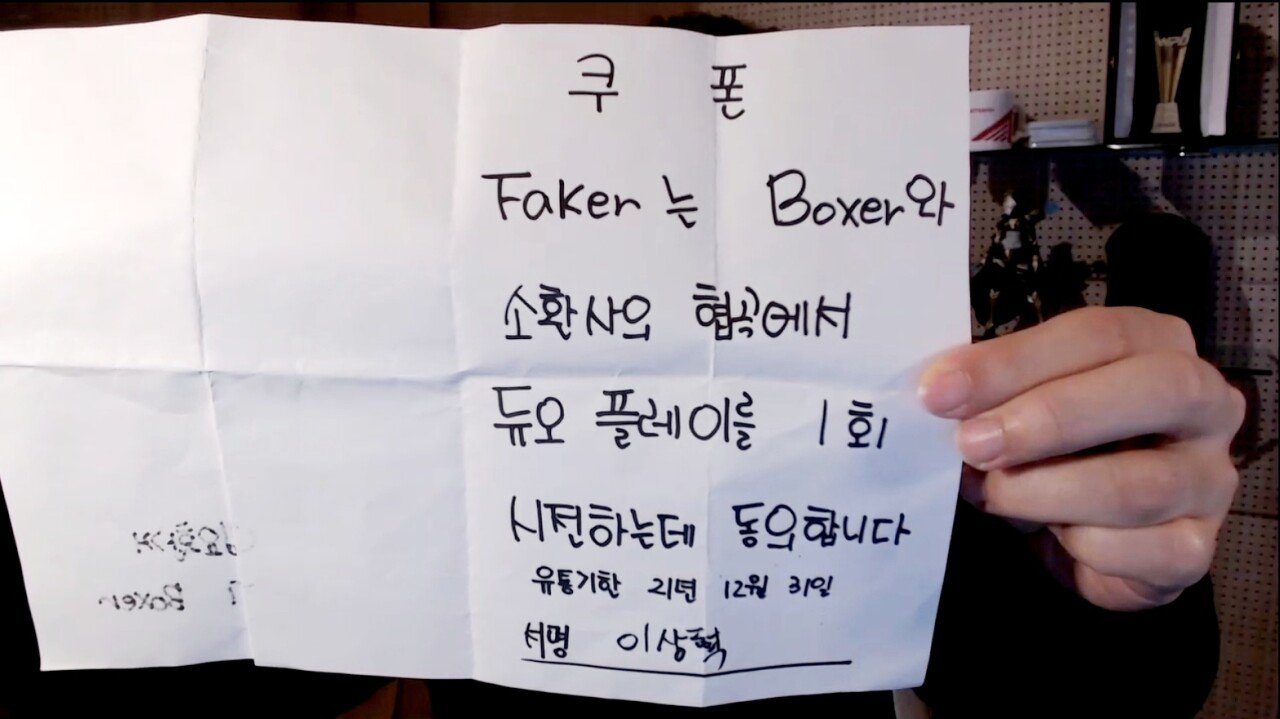 쿠 폰
Faker는 Boxer와
소환사의 협곡에서
듀오 플레이를 1회
시전하는데 동의합니다
유통기한 21년 12월 31일
서명 이상혁
Boxer